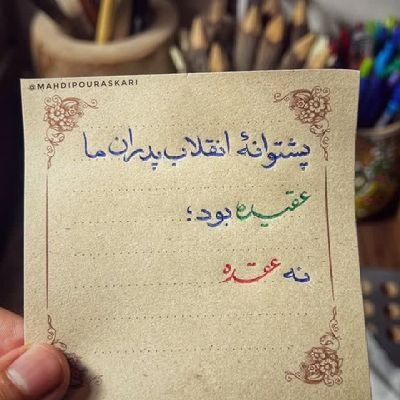 @MAHDIPOURASKARI
پشتوانهٔ انقلاب پدران ما
عقیده بود؛
نه عقده